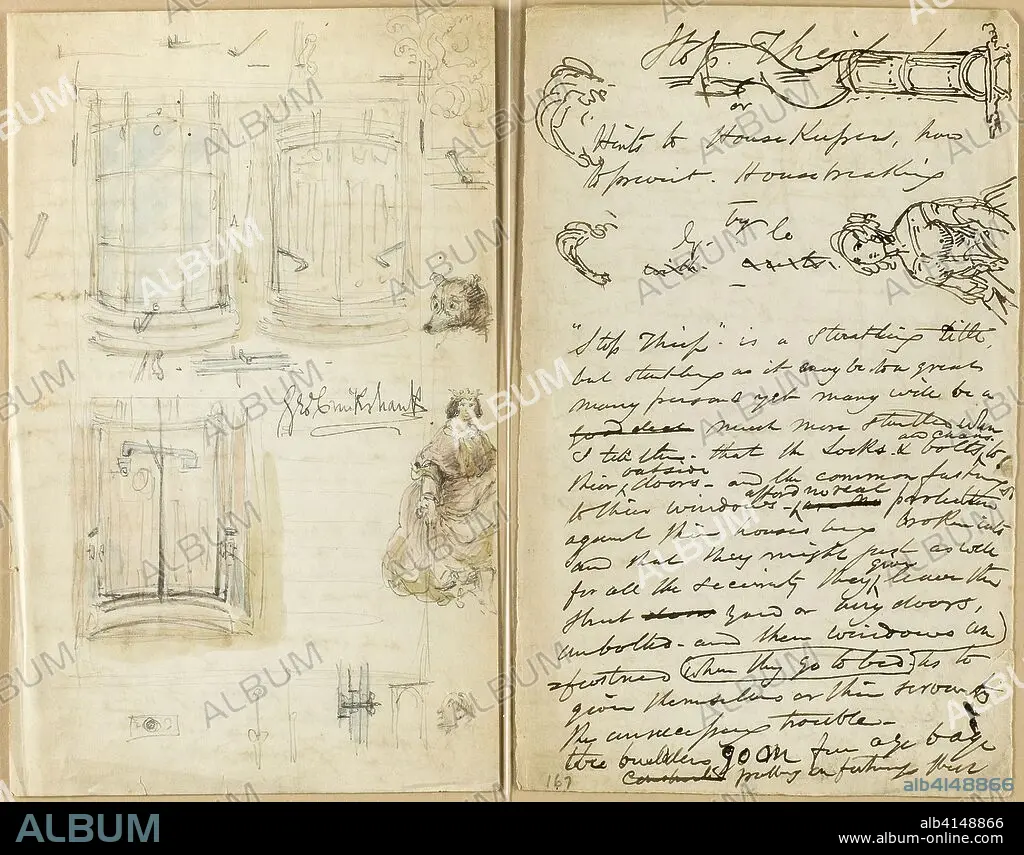 Geo Cruikshank
Stop. Thief!
or
Hints to House Keepers, how
to prevent. Housebreaking
by
"Stop Thief"- is a startling title,
but startling as it may be to a great
many persons yet many will be a
much more startled when
I tell them - that the Locks & bolts, and chains to
their outside doors - and the common fastings
to their windows - afford no real protection
against their houses being broken into
and that they might just as well
for all the security they give, leave the
street yard or doors,
unbolted - and their windows un
=fastened (when they go to bed) as to
give themselves or their servants
the unnecessary trouble -
builders go on from age to age
putting in fastings their
167
ALBUM
alb4148866
ALBUM
alb4148866
www.album-online.com